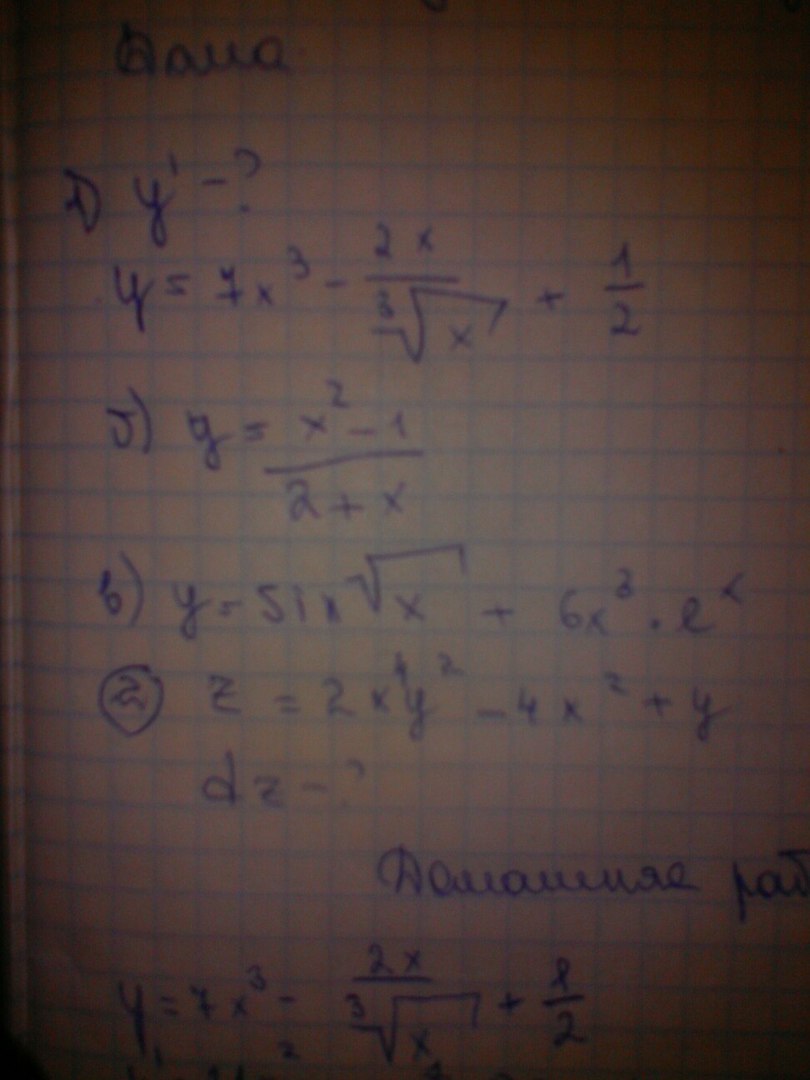 Дома
1) y' - ?
y = 7x³ - 2x/∛x + 1/2
б) y = (x² - 1)/(2 + x)
в) y = sin √x + 6x³ · eˣ
② z = 2x⁴y² - 4x² + y
dz - ?
Домашняя раб
y = 7x³ - 2x/∛x + 1/2